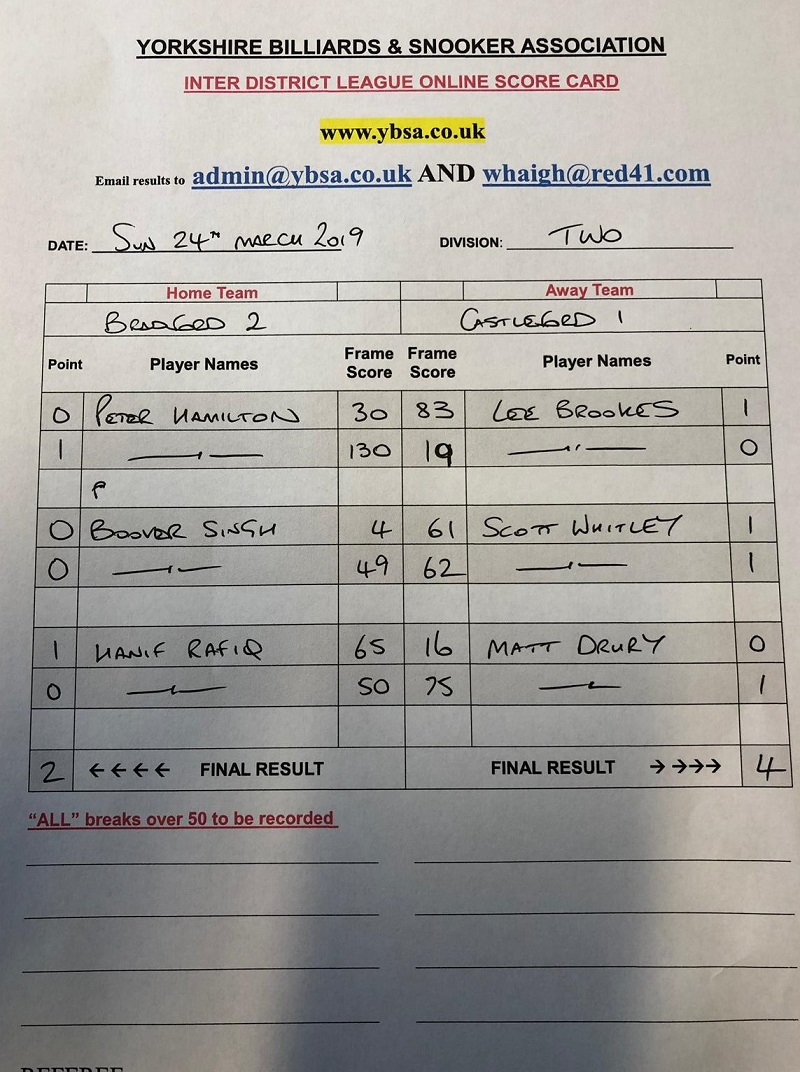 YORKSHIRE BILLIARDS & SNOOKER ASSOCIATION
INTER DISTRICT LEAGUE ONLINE SCORE CARD
www.ybsa.co.uk
Email results to admin@ybsa.co.uk AND whaigh@red41.com
DATE: SUN 24TH MARCH 2019 DIVISION: TWO
Home Team Away Team
BRADFORD 2 CASTLEFORD 1
Point Player Names Frame Score Frame Score Player Names Point
0 PETER HAMILTON 30 83 LEE BROOKES 1
1 —"— 130 19 —"— 0
P
0 BOOVER SINGH 4 61 SCOTT WHITLEY 1
0 —"— 49 62 —"— 1
1 HANIF RAFIQ 65 16 MATT DRURY 0
0 —"— 50 75 —"— 1
2 ←←←← FINAL RESULT FINAL RESULT →→→→ 4
“ALL” breaks over 50 to be recorded
REFEREE